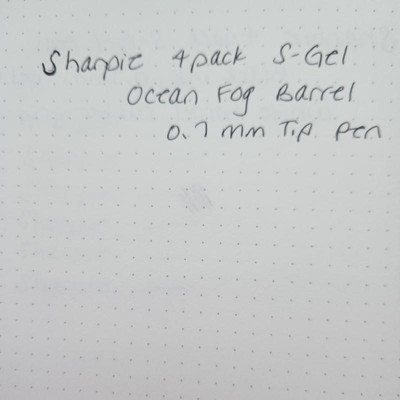 Sharpie 4 pack S-Gel
Ocean Fog Barrel
0.7 mm Tip Pen